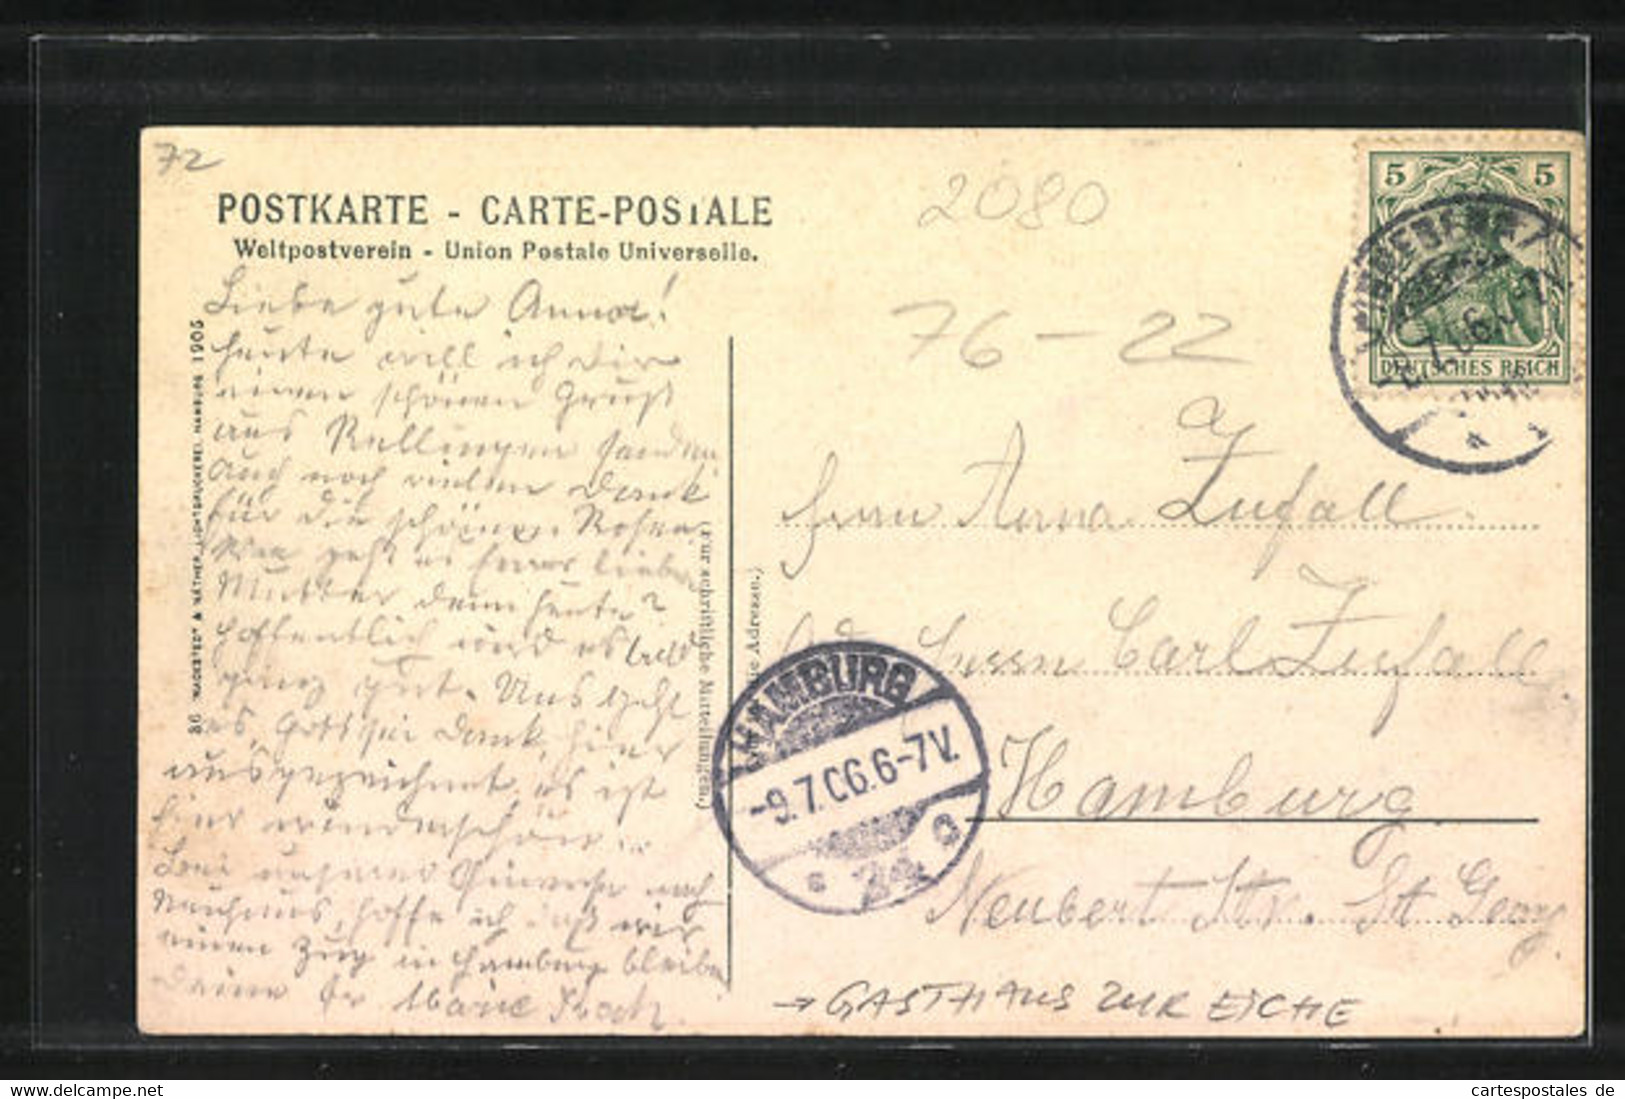 72
POSTKARTE - CARTE-POSTALE
Weltpostverein - Union Postale Universelle.
2080
76-22
5 5
DEUTSCHES REICH
Liebe gute Anna!
heute will ich Dir
einen schönen Gruß
aus Rellingen senden
Auch noch vielen Dank
für die schönen Rosen.
Wie geht es Eurer lieben
Mutter denn heute?
hoffentlich wird es bald
ganz gut. Uns geht
es, Gott sei Dank, hier
ausgezeichnet, es ist
hier wunderschön
Bei unserer nach
hoffe ich daß wir
einen Zug in Hamburg bleiben
Deine Marie
36 1905
(Für schriftliche Mitteilungen.)
Adresse.)
Anna Zufall
Herrn Carl Zufall
Hamburg
Neubert Str. St Georg
HAMBURG
-9.7.06.6-7V.
→ GASTHAUS ZUR EICHE
cartespostales de